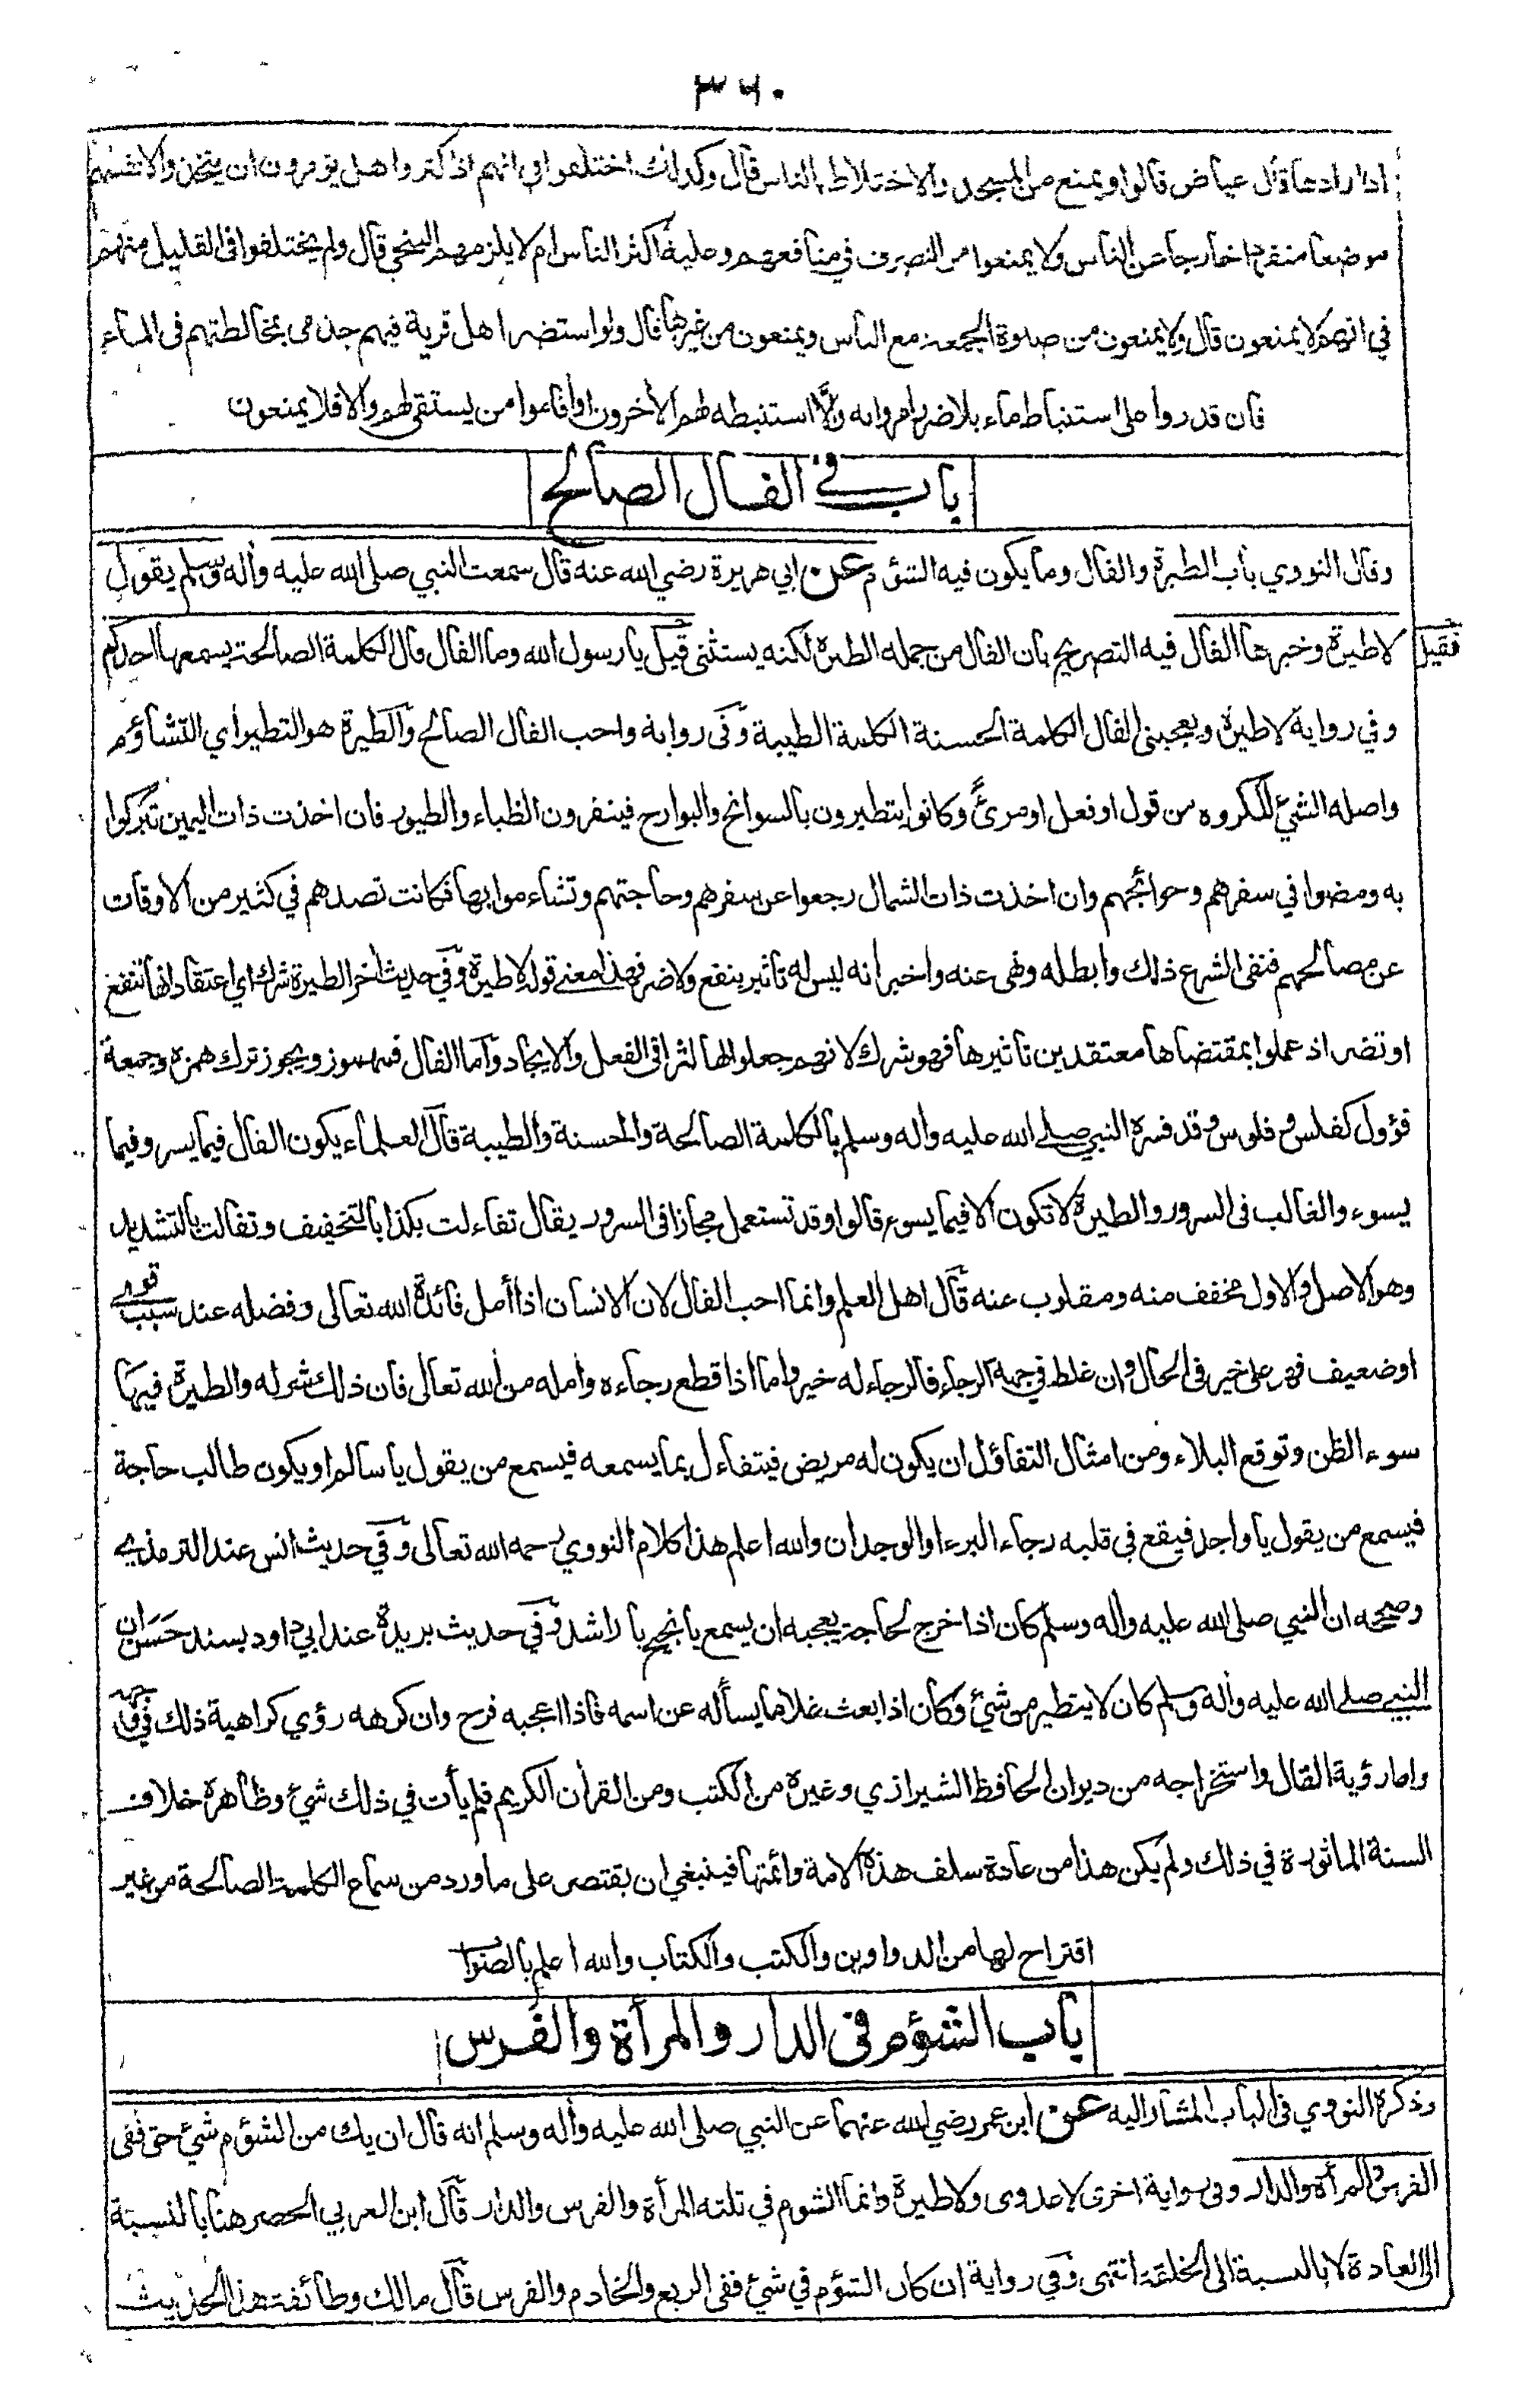 ٣٦٠
اذا رادها قال عياض قالوا ويمنع من المسجد والاختلاط بالناس قال وكذلك اختلفوا في انهم اذا كثروا هل يؤمرون ان يتخذوا لانفسهم
موضعا منفردا خارجا عن الناس ولا يمنعوا من التصرف في منافعهم وعليه اكثر الناس ام لا يلزمهم التنحي قال ولم يختلفوا في القليل منهم
في انهم لا يمنعون قال ولا يمنعون من صلوة الجمعة مع الناس ويمنعون من غيرها قال ولو استضر اهل قرية فيهم جذمى بمخالطتهم في الماء
فان قدروا على استنباط ماء بلا ضرر امروا به والا استنبطه لهم الآخرون او اقاموا من يستقي لهم والا فلا يمنعون
باب في الفال الصالح
وقال النووي باب الطيرة والفال وما يكون فيه الشؤم عن ابي هريرة رضي الله عنه قال سمعت النبي صلى الله عليه وآله وسلم يقول
لا طيرة وخيرها الفال فيه التصريح بان الفال من جملة الطيرة لكنه يستثنى قيل يا رسول الله وما الفال قال الكلمة الصالحة يسمعها احدكم
فقيل
وفي رواية لا طيرة ويعجبني الفال الكلمة الحسنة الكلمة الطيبة وفي رواية واحب الفال الصالح والطيرة هو التطير أي التشاؤم
واصله الشيء المكروه من قول او فعل او مرئي وكانوا يتطيرون بالسوانح والبوارح فينفرون الظباء والطيور فان اخذت ذات اليمين تبركوا
به ومضوا في سفرهم وحوائجهم وان اخذت ذات الشمال رجعوا عن سفرهم وحاجتهم وتشاءموا بها فكانت تصدهم في كثير من الاوقات
عن مصالحهم فنفى الشرع ذلك وابطله ونهى عنه واخبر انه ليس له تاثير بنفع ولا ضر فهذا معنى قوله لا طيرة وفي حديث آخر الطيرة شرك اي اعتقاد انها تنفع
او تضر اذ عملوا بمقتضاها معتقدين تاثيرها فهو شرك لانهم جعلوا لها اثرا في الفعل والايجاد واما الفال فمهموز ويجوز ترك همزه وجمعه
فؤول كفلس وفلوس وقد فسره النبي صلى الله عليه وآله وسلم بالكلمة الصالحة والحسنة والطيبة قال العلماء يكون الفال فيما يسر وفيما
يسوء والغالب في السرور والطيرة لا تكون الا فيما يسوء قالوا وقد تستعمل مجازا في السرور يقال تفاءلت بكذا بالتخفيف وتفالت بالتشديد
وهو الاصل والاول مخفف منه ومقلوب عنه قال اهل العلم وانما احب الفال لان الانسان اذا أمل فائدة الله تعالى وفضله عند سبب قوي
او ضعيف فهو على خير في الحال وان غلط في جهة الرجاء فالرجاء له خير واما اذا قطع رجاءه وامله من الله تعالى فان ذلك شر له والطيرة فيها
سوء الظن وتوقع البلاء ومن امثال التفاؤل ان يكون له مريض فيتفاءل بما يسمعه فيسمع من يقول يا سالم او يكون طالب حاجة
فيسمع من يقول يا واجد فيقع في قلبه رجاء البرء او الوجدان والله اعلم هذا كلام النووي رحمه الله تعالى وفي حديث انس عند الترمذي
وصححه ان النبي صلى الله عليه وآله وسلم كان اذا خرج لحاجة يعجبه ان يسمع يا نجيح يا راشد وفي حديث بريدة عند ابي داود بسند حسن ان
النبي صلى الله عليه وآله وسلم كان لا يتطير من شيء وكان اذا بعث غلاما يسأله عن اسمه فاذا اعجبه فرح وان كرهه رؤي كراهية ذلك في وجهه
واما رؤية الفال واستخراجه من ديوان الحافظ الشيرازي وغيره من الكتب ومن القرآن الكريم فلم يأت في ذلك شيء وظاهره خلاف
السنة الماثورة في ذلك ولم يكن هذا من عادة سلف هذه الامة وائمتها فينبغي ان يقتصر على ما ورد من سماع الكلمة الصالحة من غير
اقتراح لها من الدواوين والكتب والكتاب والله اعلم بالصواب
باب الشؤم في الدار والمرأة والفرس
وذكره النووي في الباب المشار اليه عن ابن عمر رضي الله عنهما عن النبي صلى الله عليه وآله وسلم انه قال ان يك من الشؤم شيء حق ففي
الفرس والمرأة والدار وفي رواية اخرى لا عدوى ولا طيرة وانما الشوم في ثلثة المرأة والفرس والدار قال ابن العربي الحصر هنا بالنسبة
الى العادة لا بالنسبة الى الخلقة انتهى وفي رواية ان كان الشؤم في شيء ففي الربع والخادم والفرس قال مالك وطائفة هذا الحديث